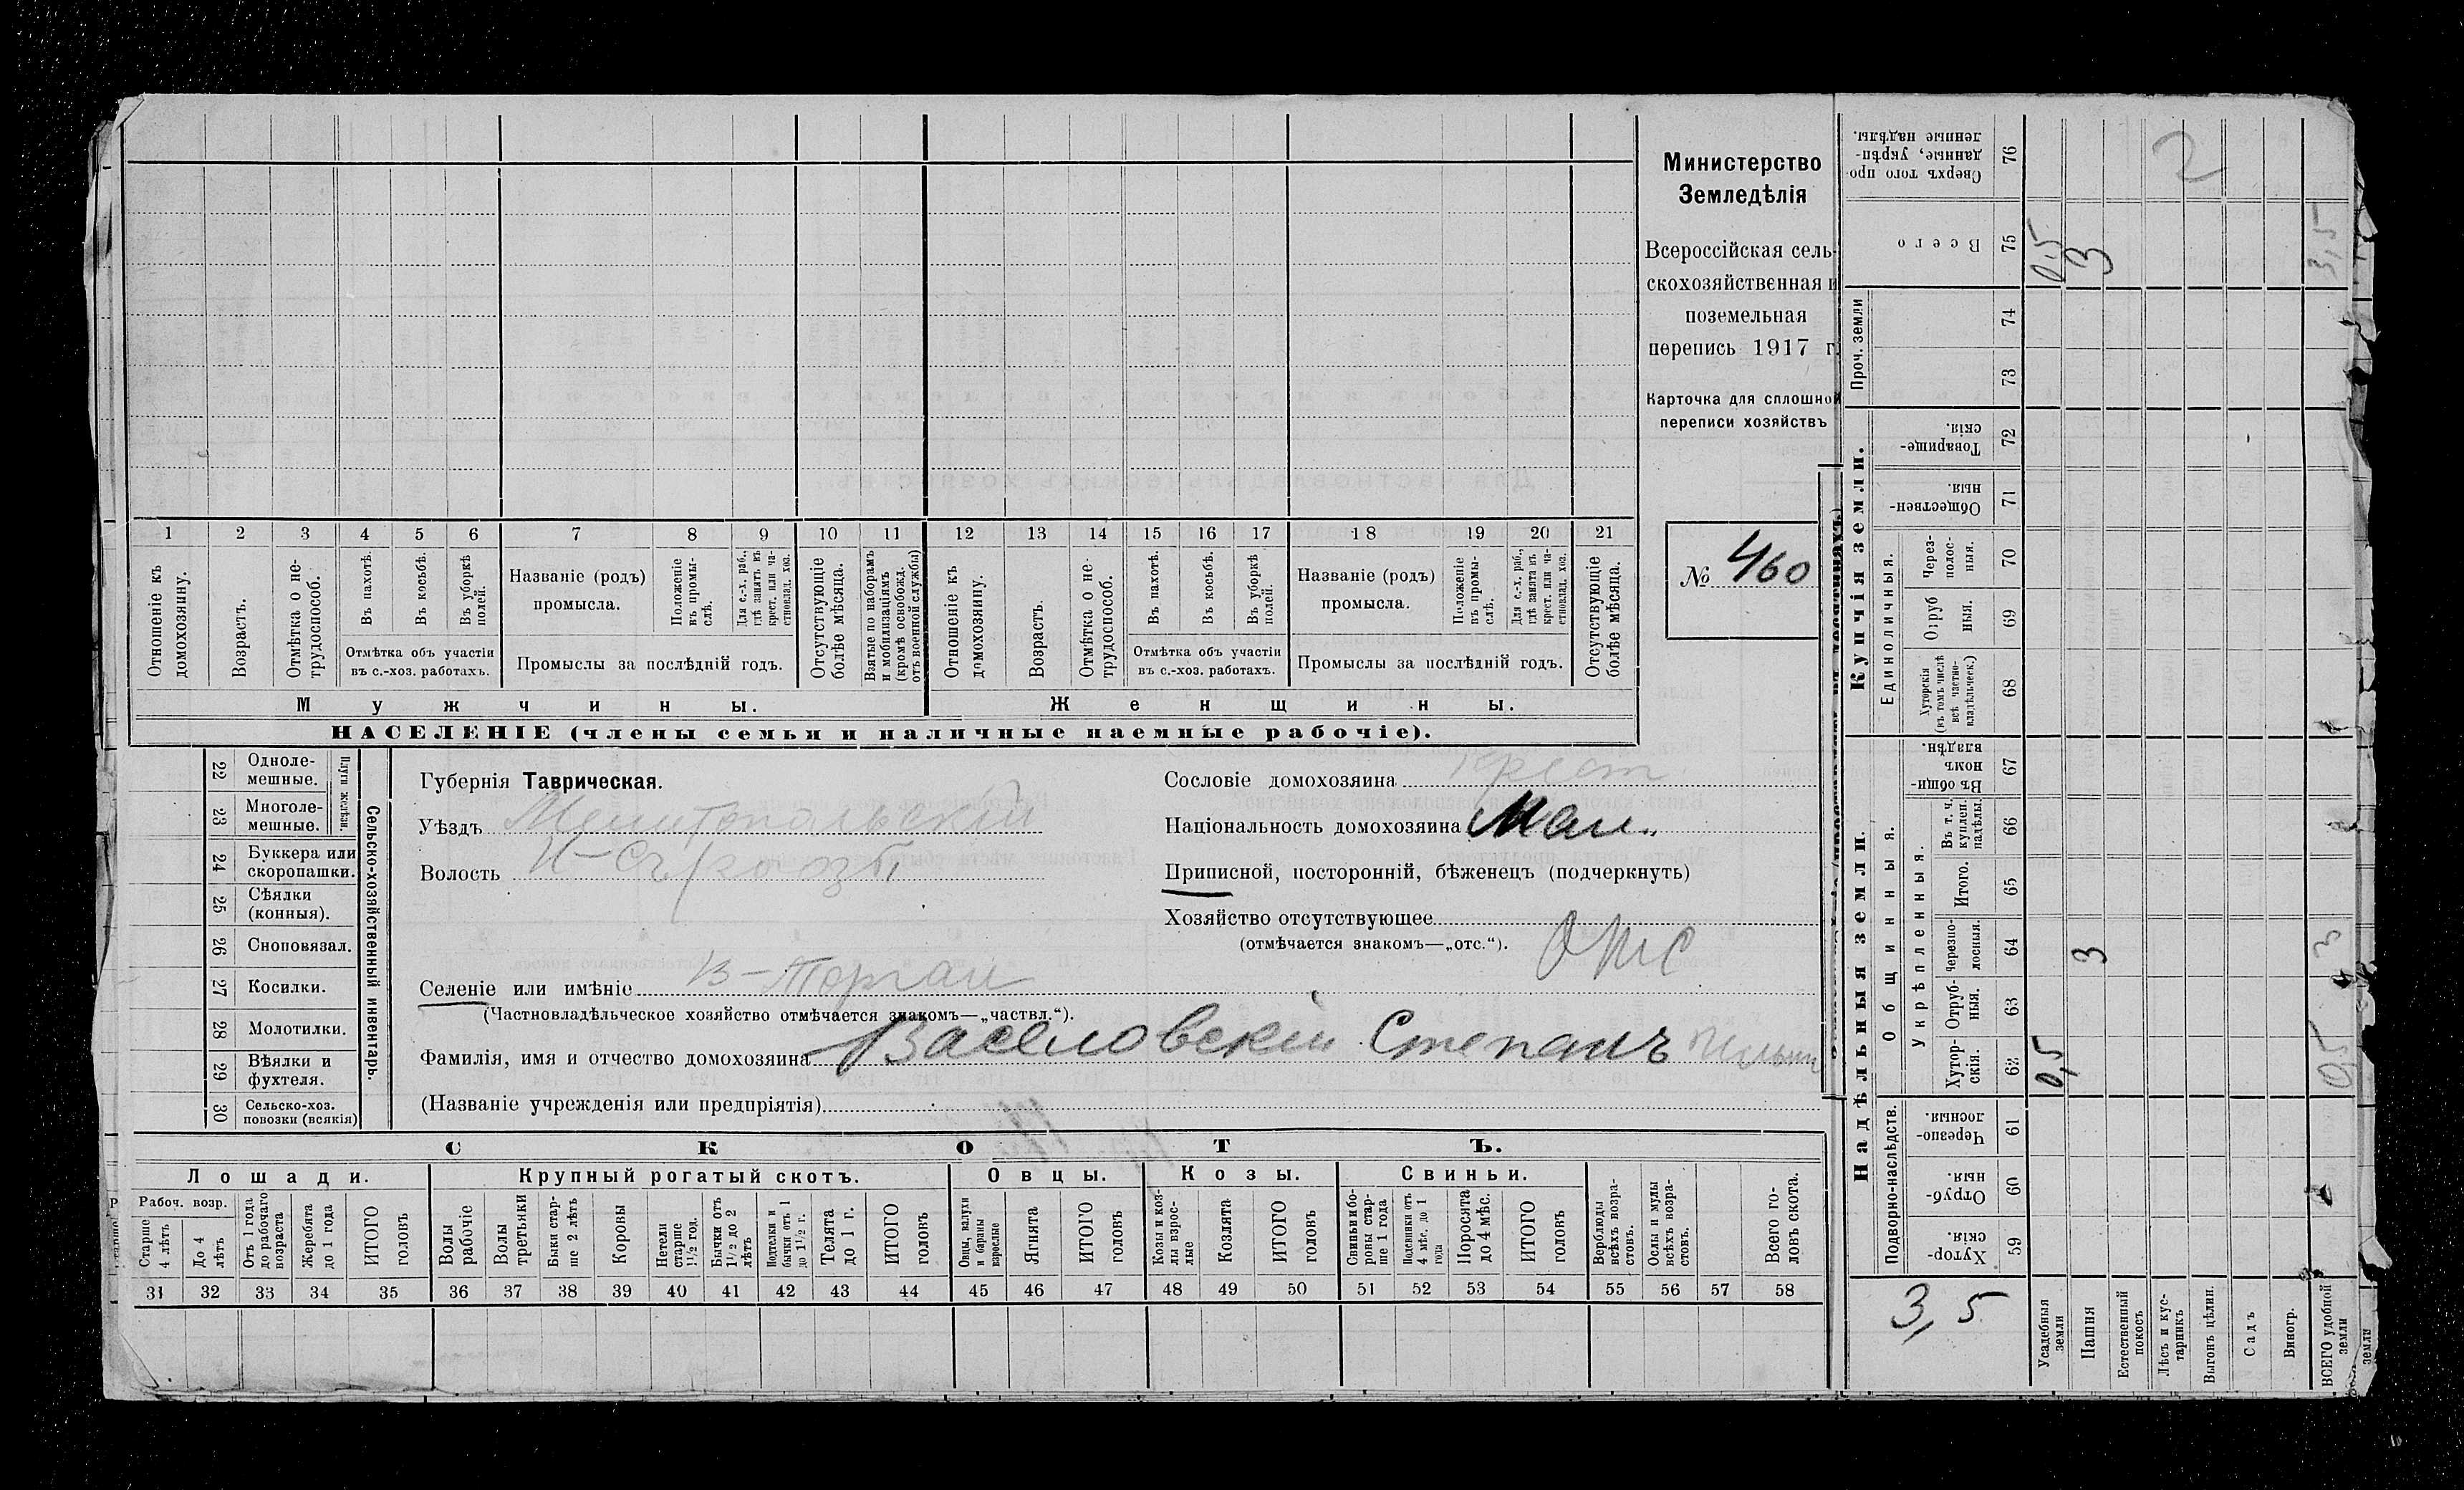 Министерство
Земледѣлія
Всероссійская сель-
скохозяйственная и
поземельная
перепись 1917 г.
Карточка для сплошной
переписи хозяйствъ
№ 460
1 2 3 4 5 6 7 8 9 10 11 12 13 14 15 16 17 18 19 20 21
Отношеніе къ домохозяину.
Возрастъ.
Отмѣтка о не-трудоспособ.
Въ пахотѣ.
Въ косьбѣ.
Въ уборкѣ полей.
Отмѣтка объ участіи
въ с.-хоз. работахъ.
Названіе (родъ)
промысла.
Положеніе въ промы-слѣ.
Для с.-х. раб., гдѣ занятъ въ крест. или ча-стновлад. хоз.
Промыслы за послѣдній годъ.
Отсутствующіе болѣе мѣсяца.
Взятые по наборамъ и мобилизаціямъ (кромѣ освобожд. отъ военной службы)
Отношеніе къ домохозяину.
Возрастъ.
Отмѣтка о не-трудоспособ.
Въ пахотѣ.
Въ косьбѣ.
Въ уборкѣ полей.
Отмѣтка объ участіи
въ с.-хоз. работахъ.
Названіе (родъ)
промысла.
Положеніе въ промы-слѣ.
Для с.-х. раб., гдѣ занята въ крест. или ча-стновлад. хоз.
Промыслы за послѣдній годъ.
Отсутствующіе болѣе мѣсяца.
Мужчины.
Женщины.
НАСЕЛЕНІЕ (члены семьи и наличные наемные рабочіе).
Сельско-хозяйственный инвентарь.
Плуги желѣзн.
22 Одноле-мешные.
23 Многоле-мешные.
24 Буккера или скоропашки.
25 Сѣялки (конныя).
26 Сноповязал.
27 Косилки.
28 Молотилки.
29 Вѣялки и фухтеля.
30 Сельско-хоз. повозки (всякія)
Губернія Таврическая.
Уѣздъ Мелитопольскій
Волость
Селеніе или имѣніе В-Торгаи
(Частновладѣльческое хозяйство отмѣчается знакомъ—„частвл.“).
Фамилія, имя и отчество домохозяина Васеловскій Степанъ
(Названіе учрежденія или предпріятія)
Сословіе домохозяина крест
Національность домохозяина Мал.
Приписной, посторонній, бѣженецъ (подчеркнуть)
Хозяйство отсутствующее
(отмѣчается знакомъ—„отс.“).
СКОТЪ.
Лошади. Крупный рогатый скотъ. Овцы. Козы. Свиньи.
Рабоч. возр.
Старше 4 лѣтъ
До 4 лѣтъ
Отъ 1 года до рабочаго возраста
Жеребята до 1 года
ИТОГО головъ
Волы рабочіе
Волы третьяки
Быки стар-ше 2 лѣтъ
Коровы
Нетели старше 1½ год.
Бычки отъ 1½ до 2 лѣтъ
Подтелки и бычки отъ 1 до 1½ г.
Телята до 1 г.
ИТОГО головъ
Овцы, валухи и бараны взрослые
Ягнята
ИТОГО головъ
Козы и коз-лы взрос-лые
Козлята
ИТОГО головъ
Свиньи и бо-ровы стар-ше 1 года
Подсвинки отъ 4 мѣс. до 1 года
Поросята до 4 мѣс.
ИТОГО головъ
Верблюды всѣхъ возра-стовъ.
Ослы и мулы всѣхъ возра-стовъ.
Всего го-ловъ скота.
31 32 33 34 35 36 37 38 39 40 41 42 43 44 45 46 47 48 49 50 51 52 53 54 55 56 57 58
Сверхъ того про-данные, укрѣп-ленные надѣлы. 76
2
Всего 75 0,5 3 3,5
Купчія земли.
Проч. земли 74 73
Товарище-скія. 72
Обществен-ныя. 71
Единоличныя.
Через-полос-ныя. 70
Отруб ныя. 69
Хуторскія (въ томъ числѣ всѣ частно-владѣльческ.) 68
Надѣльныя земли.
Общинныя.
Въ общи-номъ владѣн. 67
Укрѣпленныя.
Въ т. ч. куплен. надѣлы. 66
Итого. 65
Черезпо-лосныя. 64 3 3
Отруб-ныя. 63
Хутор-скія. 62 0,5 0,5
Подворно-наслѣдств.
Черезпо-лосныя. 61
Отруб-ныя. 60
Хутор-скія. 59
3,5
Усадебныя земли
Пашня
Естественный покосъ
Лѣсъ и кус-тарникъ
Выгонъ цѣлин.
Садъ
Виногр.
ВСЕГО удобной земли